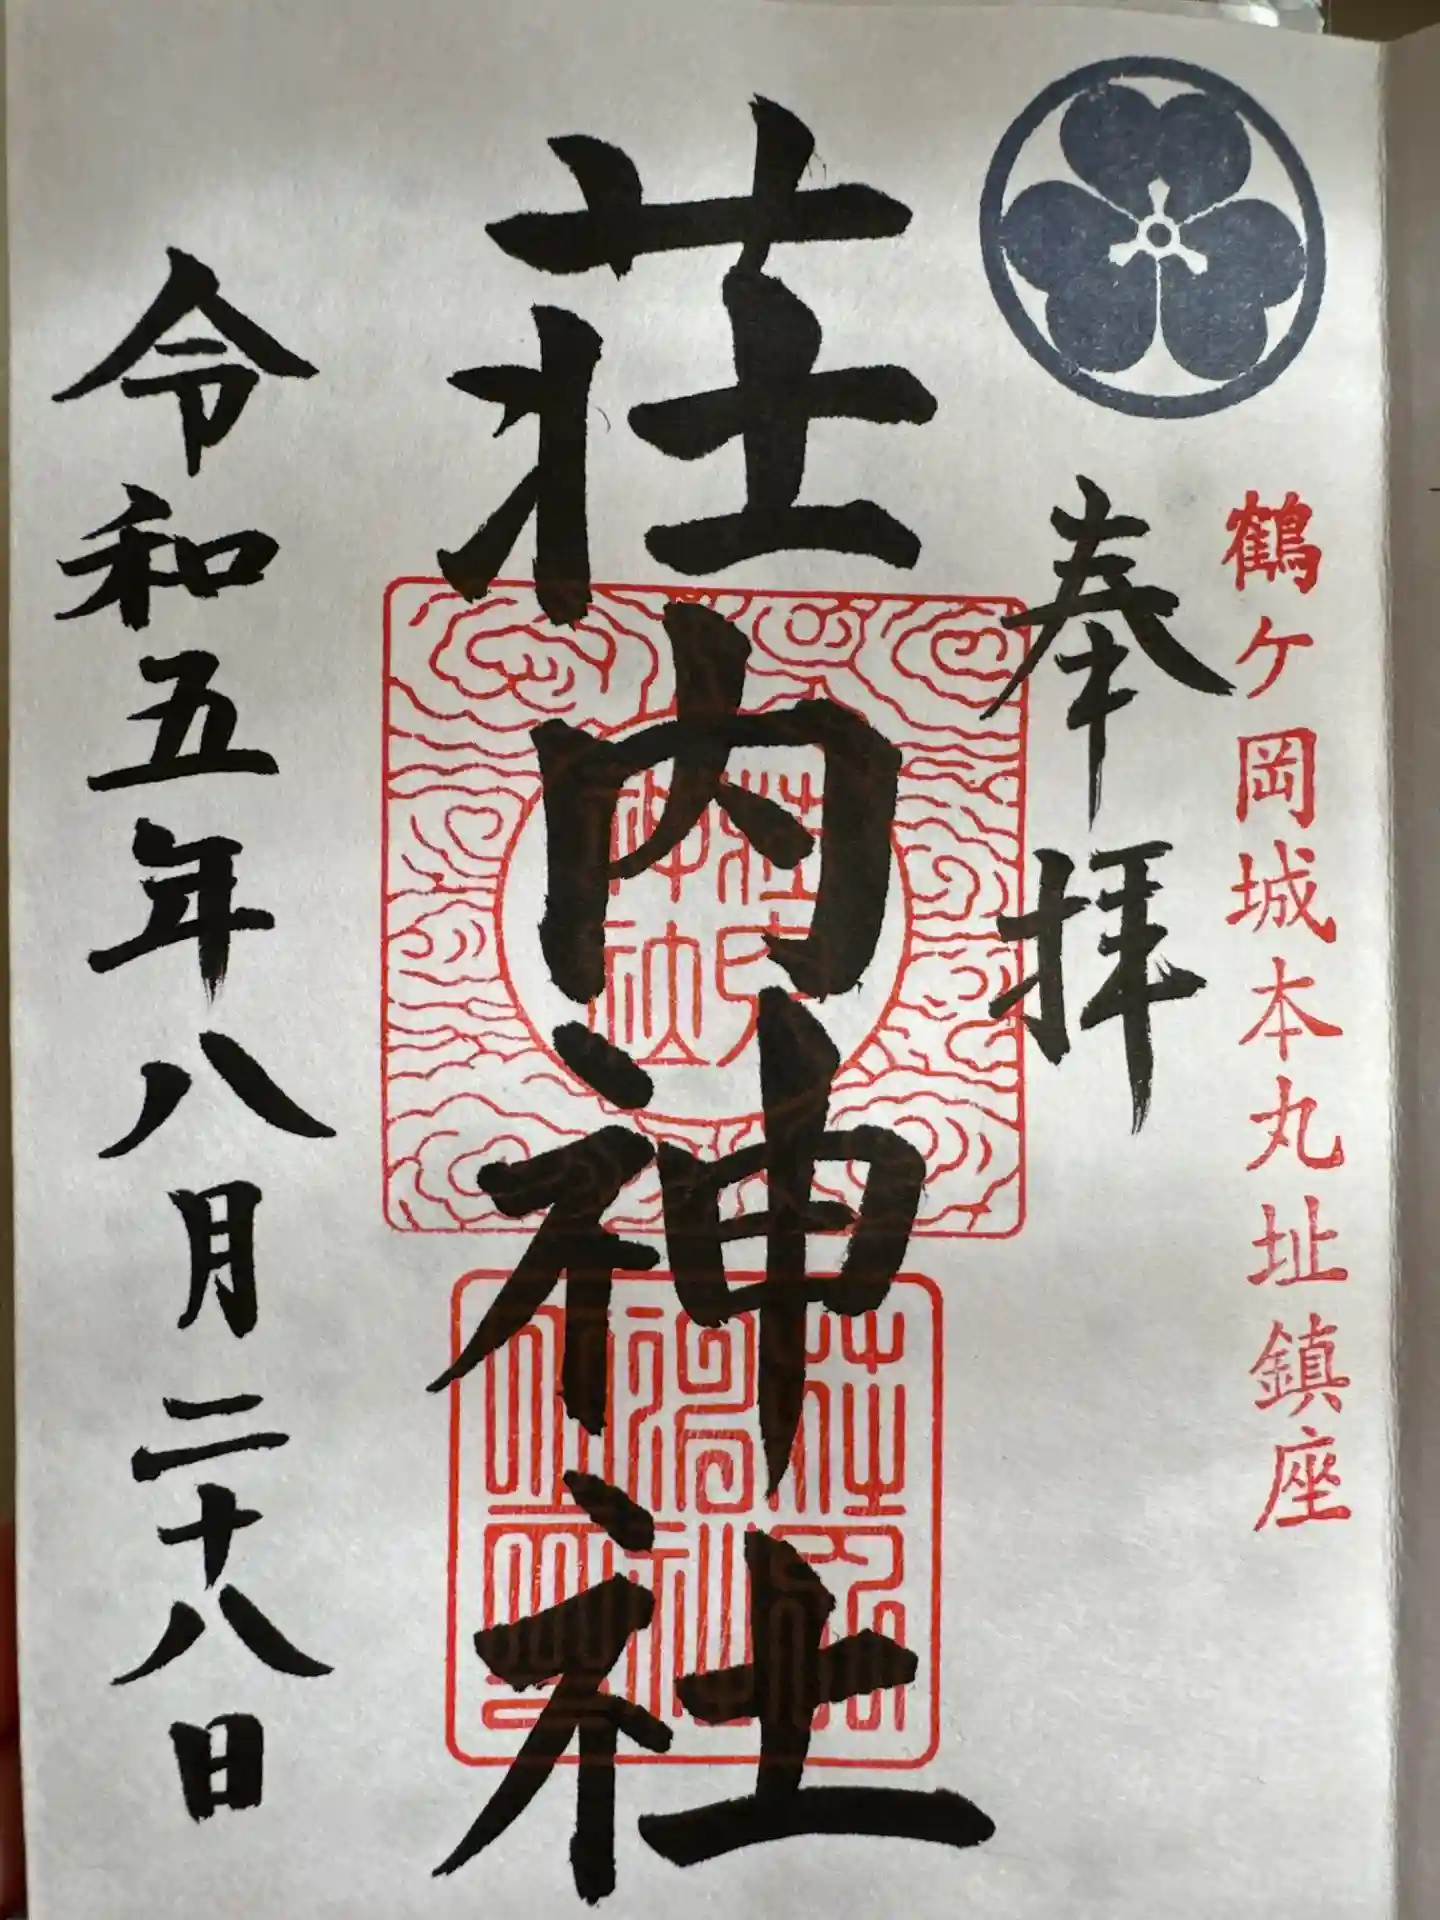 鶴ヶ岡城本丸址鎮座
奉拝
荘内神社
荘内
神社
令和五年八月二十八日